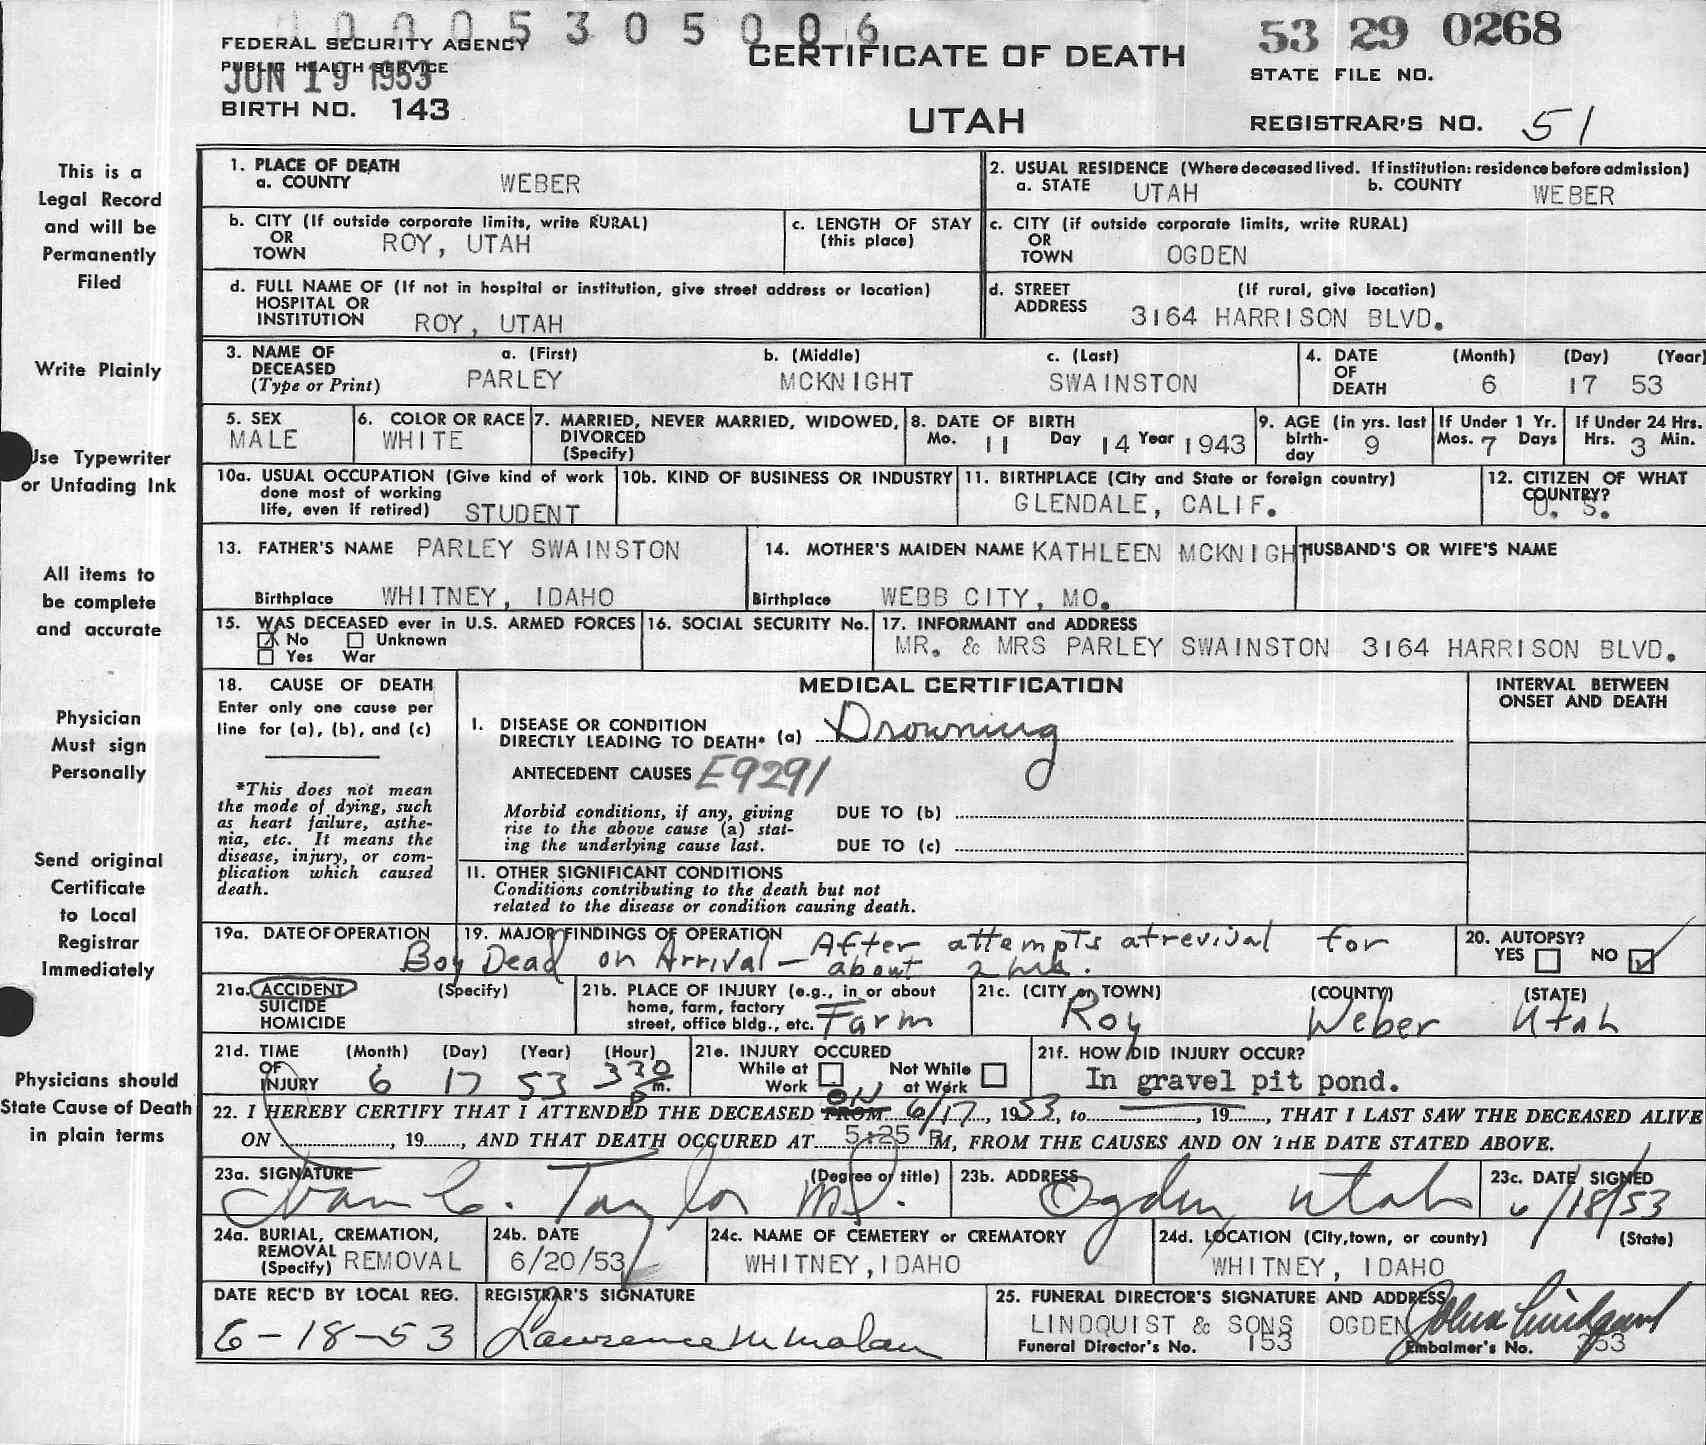 00005305006
FEDERAL SECURITY AGENCY
PUBLIC HEALTH SERVICE
JUN 19 1953
BIRTH NO. 143
CERTIFICATE OF DEATH
UTAH
53 29 0268
STATE FILE NO.
REGISTRAR'S NO. 51
This is a
Legal Record
and will be
Permanently
Filed
Write Plainly
Use Typewriter
or Unfading Ink
All items to
be complete
and accurate
Physician
Must sign
Personally
Send original
Certificate
to Local
Registrar
Immediately
Physicians should
State Cause of Death
in plain terms
1. PLACE OF DEATH
a. COUNTY WEBER
2. USUAL RESIDENCE (Where deceased lived. If institution: residence before admission)
a. STATE UTAH b. COUNTY WEBER
b. CITY (If outside corporate limits, write RURAL)
OR
TOWN ROY, UTAH
c. LENGTH OF STAY
(this place)
c. CITY (if outside corporate limits, write RURAL)
OR
TOWN OGDEN
d. FULL NAME OF (If not in hospital or institution, give street address or location)
HOSPITAL OR
INSTITUTION ROY, UTAH
d. STREET (If rural, give location)
ADDRESS 3164 HARRISON BLVD.
3. NAME OF
DECEASED
(Type or Print)
a. (First) b. (Middle) c. (Last)
PARLEY MCKNIGHT SWAINSTON
4. DATE
OF
DEATH
(Month) (Day) (Year)
6 17 53
5. SEX
MALE
6. COLOR OR RACE
WHITE
7. MARRIED, NEVER MARRIED, WIDOWED,
DIVORCED
(Specify)
8. DATE OF BIRTH
Mo. 11 Day 14 Year 1943
9. AGE (in yrs. last
birth-
day 9
If Under 1 Yr.
Mos. 7 Days
If Under 24 Hrs.
Hrs. 3 Min.
10a. USUAL OCCUPATION (Give kind of work
done most of working
life, even if retired) STUDENT
10b. KIND OF BUSINESS OR INDUSTRY
11. BIRTHPLACE (City and State or foreign country)
GLENDALE, CALIF.
12. CITIZEN OF WHAT
COUNTRY?
U. S.
13. FATHER'S NAME PARLEY SWAINSTON
Birthplace WHITNEY, IDAHO
14. MOTHER'S MAIDEN NAME KATHLEEN MCKNIGHT
Birthplace WEBB CITY, MO.
HUSBAND'S OR WIFE'S NAME
15. WAS DECEASED ever in U.S. ARMED FORCES
X No Unknown
Yes War
16. SOCIAL SECURITY No.
17. INFORMANT and ADDRESS
MR. & MRS PARLEY SWAINSTON 3164 HARRISON BLVD.
18. CAUSE OF DEATH
Enter only one cause per
line for (a), (b), and (c)
*This does not mean
the mode of dying, such
as heart failure, asthe-
nia, etc. It means the
disease, injury, or com-
plication which caused
death.
MEDICAL CERTIFICATION
INTERVAL BETWEEN
ONSET AND DEATH
I. DISEASE OR CONDITION
DIRECTLY LEADING TO DEATH* (a) Drowning
ANTECEDENT CAUSES E9291
Morbid conditions, if any, giving
rise to the above cause (a) stat-
ing the underlying cause last.
DUE TO (b)
DUE TO (c)
11. OTHER SIGNIFICANT CONDITIONS
Conditions contributing to the death but not
related to the disease or condition causing death.
19a. DATE OF OPERATION
19. MAJOR FINDINGS OF OPERATION
Boy Dead on Arrival - After attempts at revival for
about 2 hrs.
20. AUTOPSY?
YES NO ✓
21a. ACCIDENT (Specify)
SUICIDE
HOMICIDE
21b. PLACE OF INJURY (e.g., in or about
home, farm, factory
street, office bldg., etc. Farm
21c. (CITY or TOWN) (COUNTY) (STATE)
Roy Weber Utah
21d. TIME
OF
INJURY
(Month) (Day) (Year) (Hour)
6 17 53 3 30 P m.
21e. INJURY OCCURED
While at
Work
Not While
at Work
21f. HOW DID INJURY OCCUR?
In gravel pit pond.
22. I HEREBY CERTIFY THAT I ATTENDED THE DECEASED FROM ON 6/17, 1953, to , 19 , THAT I LAST SAW THE DECEASED ALIVE
ON , 19 , AND THAT DEATH OCCURED AT 5:25 P M, FROM THE CAUSES AND ON THE DATE STATED ABOVE.
23a. SIGNATURE (Degree or title)
Ivan C. Taylor MD.
23b. ADDRESS
Ogden, Utah
23c. DATE SIGNED
6/18/53
24a. BURIAL, CREMATION,
REMOVAL
(Specify) REMOVAL
24b. DATE
6/20/53
24c. NAME OF CEMETERY or CREMATORY
WHITNEY, IDAHO
24d. LOCATION (City, town, or county) (State)
WHITNEY, IDAHO
DATE REC'D BY LOCAL REG.
6-18-53
REGISTRAR'S SIGNATURE
Lawrence M Malan
25. FUNERAL DIRECTOR'S SIGNATURE AND ADDRESS
LINDQUIST & SONS OGDEN John Lindquist
Funeral Director's No. 153
Embalmer's No. 353